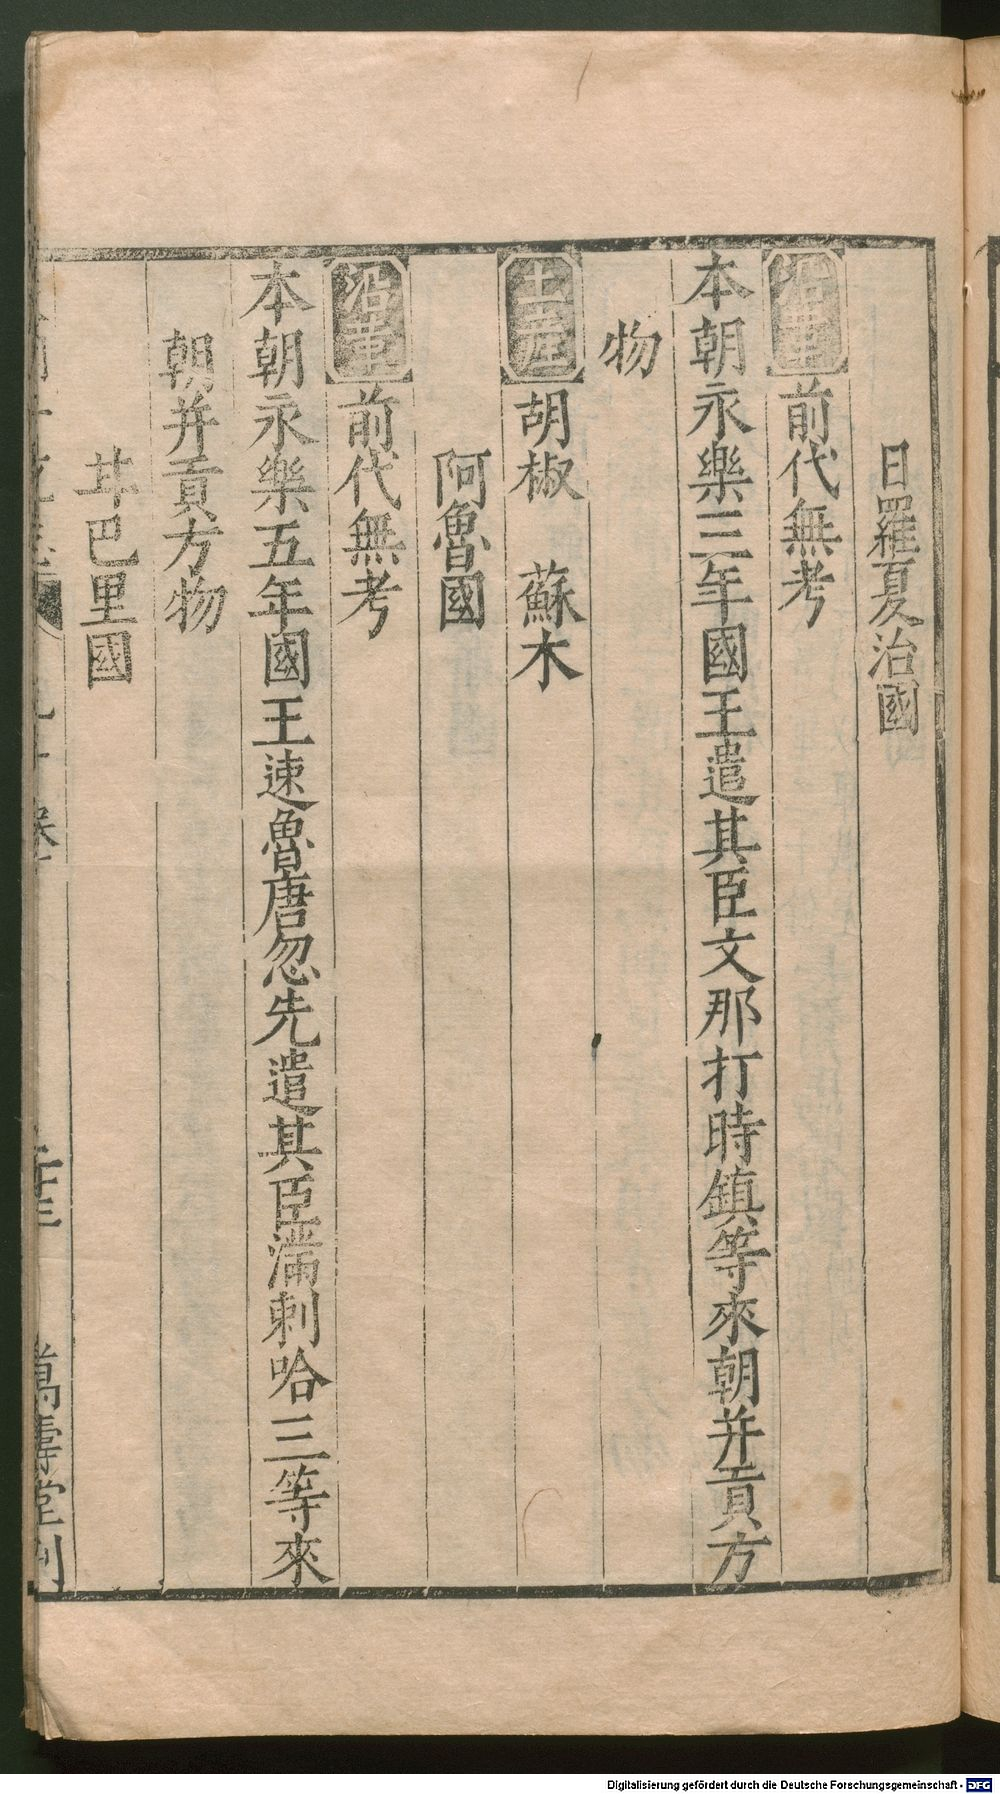 日羅夏治國
沿革 前代無考
本朝永樂三年國王遣其臣文那打時鎮等來朝并貢方
物
土産 胡椒 蘇木
阿魯國
沿革 前代無考
本朝永樂五年國王速魯唐忽先遣其臣滿剌哈三等來
朝并貢方物
甘巴里國
九十卷
萬壽堂刊
Digitalisierung gefördert durch die Deutsche Forschungsgemeinschaft - DFG